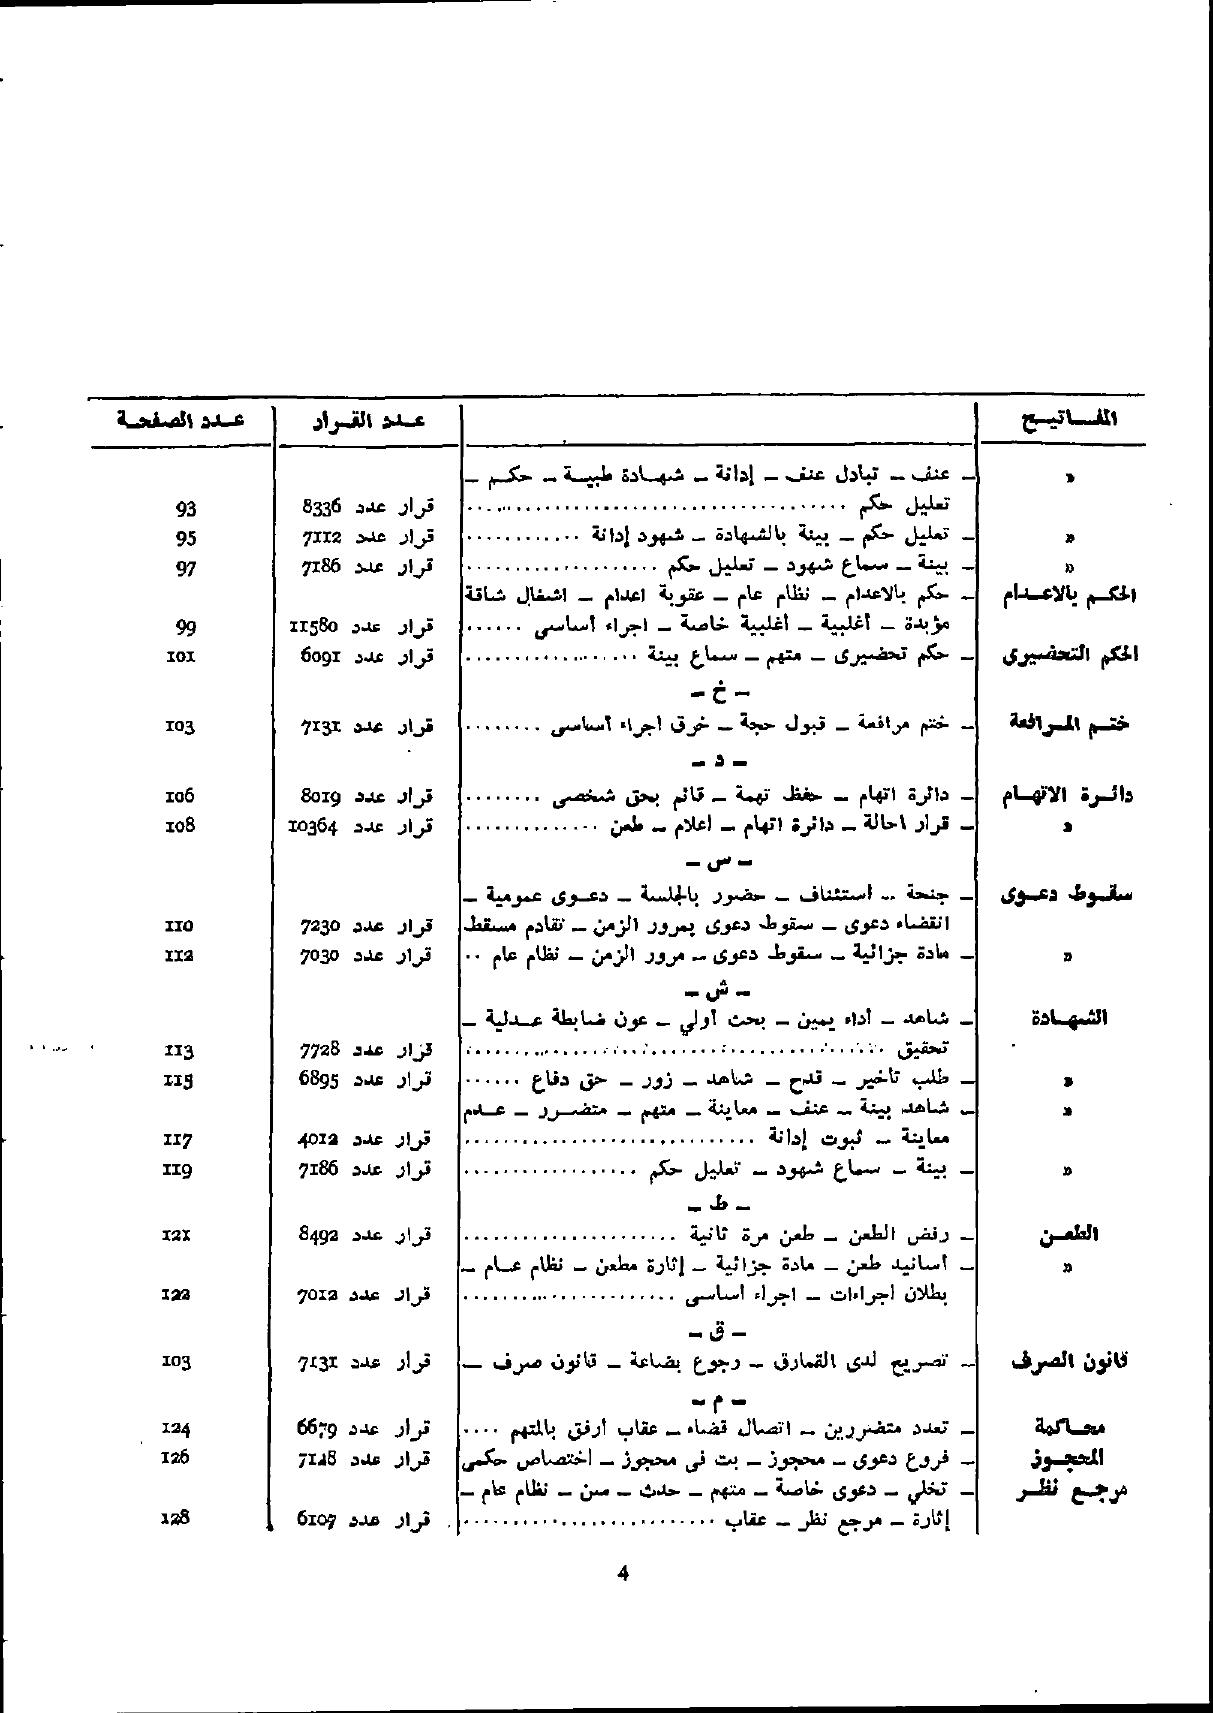 المفاتيح عدد القرار عدد الصفحة
» – عنف – تبادل عنف – إدانة – شهادة طبية – حكم –
تعليل حكم .................................... قرار عدد 8336 93
» – تعليل حكم – بينة بالشهادة – شهود إدانة ............ قرار عدد 7112 95
» – بينة – سماع شهود – تعليل حكم .................... قرار عدد 7186 97
الحكم بالاعدام – حكم بالاعدام – نظام عام – عقوبة اعدام – اشغال شاقة
مؤبدة – أغلبية – أغلبية خاصة – اجراء أساسى ...... قرار عدد 11580 99
الحكم التحضيرى – حكم تحضيرى – متهم – سماع بينة .................. قرار عدد 6091 101
– خ –
ختم المرافعة – ختم مرافعة – قبول حجة – خرق اجراء أساسى ........ قرار عدد 7131 103
– د –
دائرة الاتهام – دائرة اتهام – حفظ تهمة – قائم بحق شخصى ........ قرار عدد 8019 106
» – قرار احالة – دائرة اتهام – اعلام – طعن .............. قرار عدد 10364 108
– س –
سقوط دعوى – جنحة – استئناف – حضور بالجلسة – دعوى عمومية –
انقضاء دعوى – سقوط دعوى بمرور الزمن – تقادم مسقط قرار عدد 7230 110
» – مادة جزائية – سقوط دعوى – مرور الزمن – نظام عام .. قرار عدد 7030 112
– ش –
الشهادة – شاهد – أداء يمين – بحث أولي – عون ضابطة عدلية –
تحقيق ........................................ قرار عدد 7728 113
» – طلب تأخير – قدح – شاهد – زور – حق دفاع ...... قرار عدد 6895 115
» – شاهد بينة – عنف – معاينة – متهم – متضرر – عدم
معاينة – ثبوت إدانة ............................ قرار عدد 4012 117
» – بينة – سماع شهود – تعليل حكم .................. قرار عدد 7186 119
– ط –
الطعن – رفض الطعن – طعن مرة ثانية ...................... قرار عدد 8492 121
» – أسانيد طعن – مادة جزائية – إثارة مطعن – نظام عام –
بطلان اجراءات – اجراء اساسى ...................... قرار عدد 7012 122
– ق –
قانون الصرف – تصريح لدى القمارق – رجوع بضاعة – قانون صرف — قرار عدد 7131 103
– م –
محاكمة – تعدد متضررين – اتصال قضاء – عقاب أرفق بالمتهم .... قرار عدد 6679 124
المحجوز – فروع دعوى – محجوز – بت فى محجوز – اختصاص حكمى قرار عدد 7148 126
مرجع نظر – تخلي – دعوى خاصة – متهم – حدث – سن – نظام عام –
إثارة – مرجع نظر – عقاب .......................... قرار عدد 6107 128
4